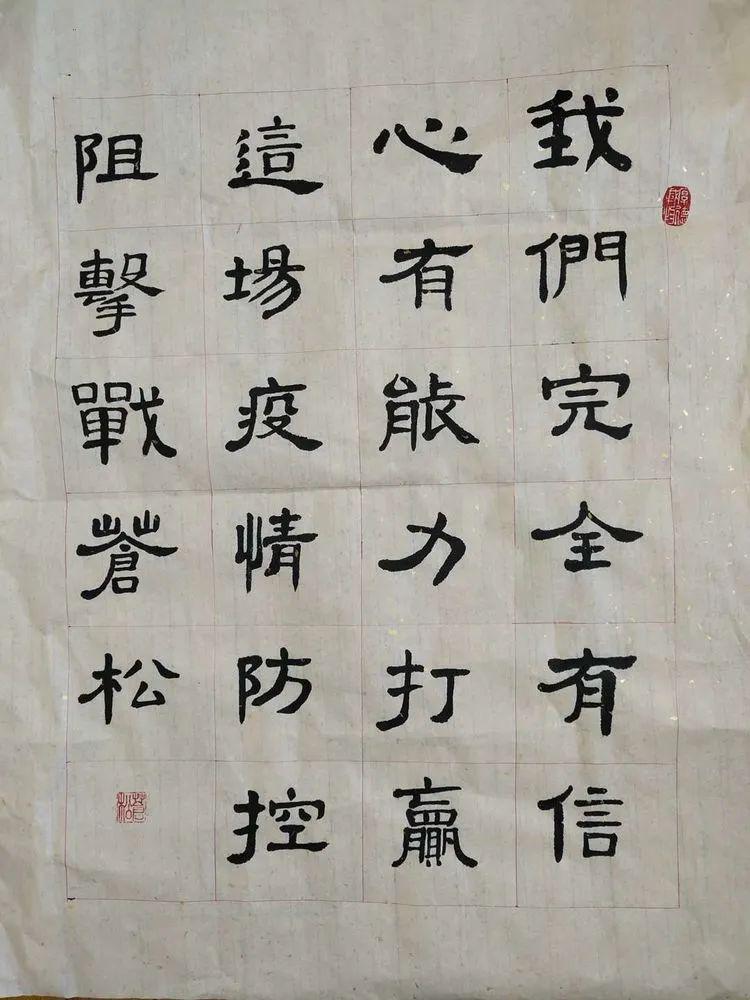 我們完全有信
心有能力打贏
這場疫情防控
阻擊戰蒼松